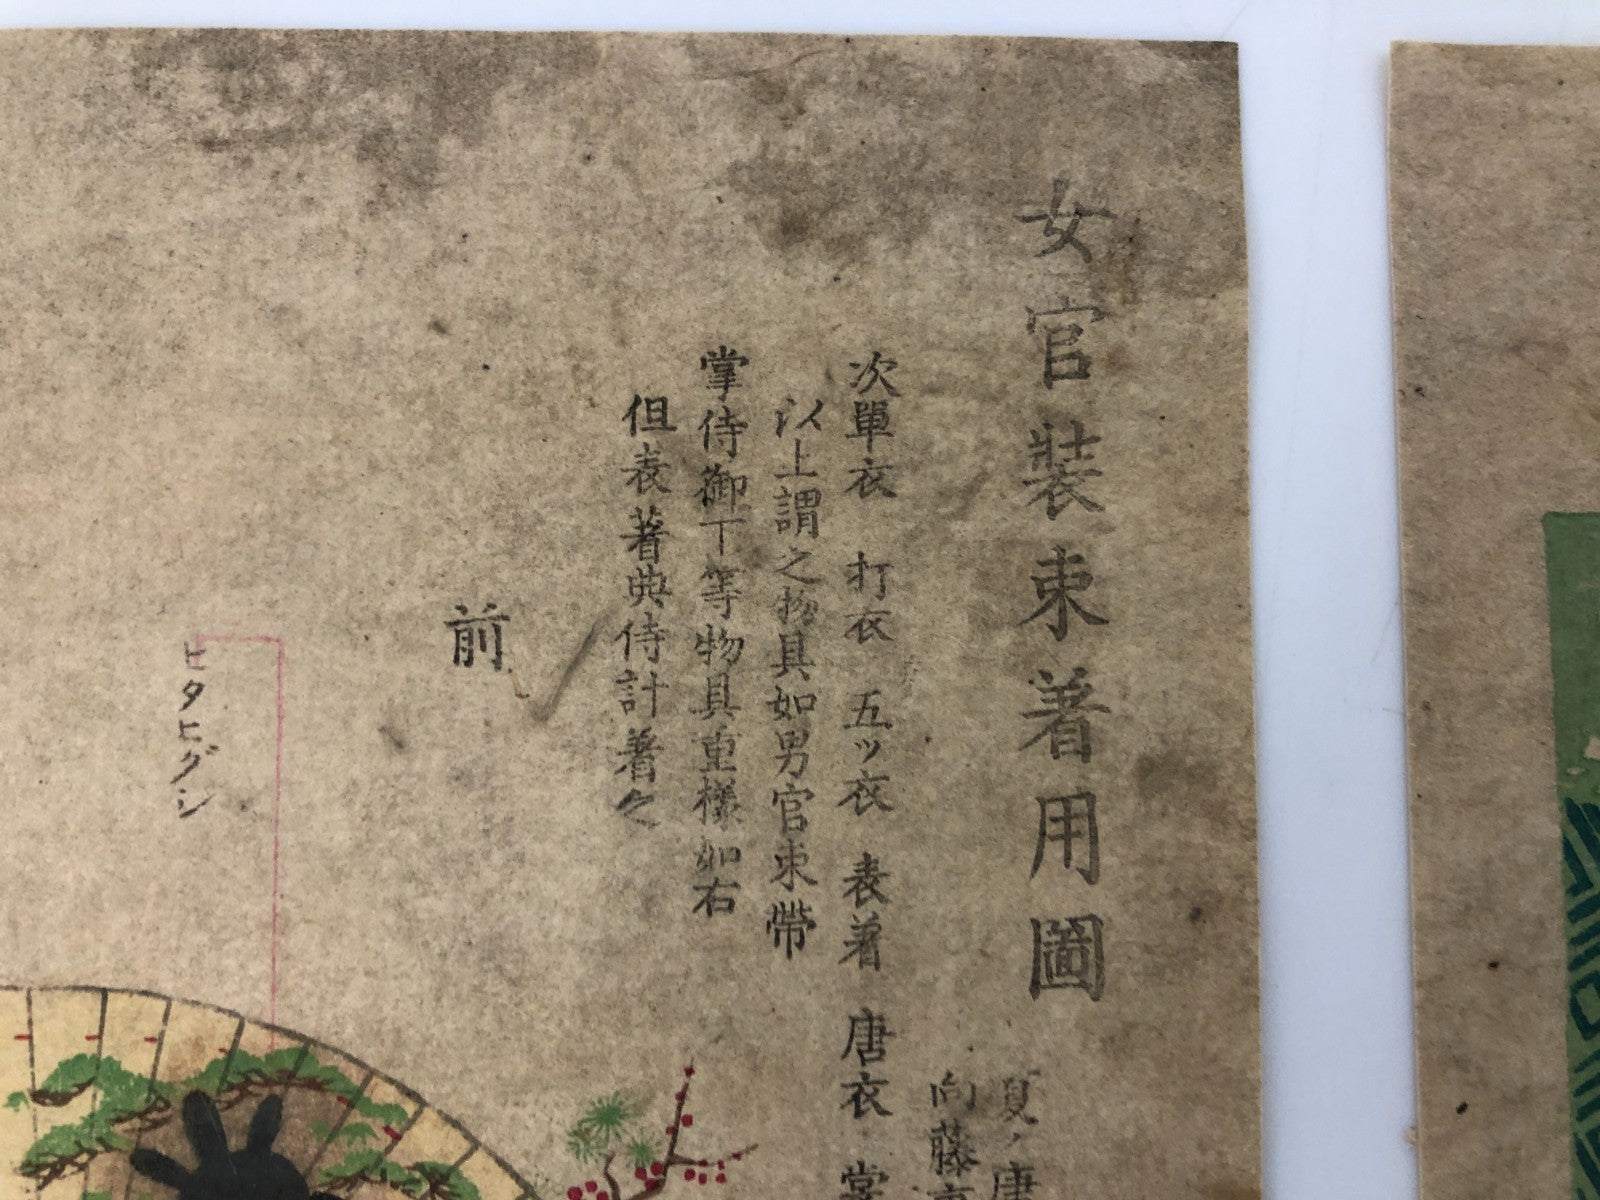 女官装束着用圖
夏ノ唐
向藤
次單衣 打衣 五ッ衣 表着 唐衣 裳
以上謂之物具如男官束帶
掌侍御下等物具重樣如右
但表著典侍計著之
前
ヒタヒグシ